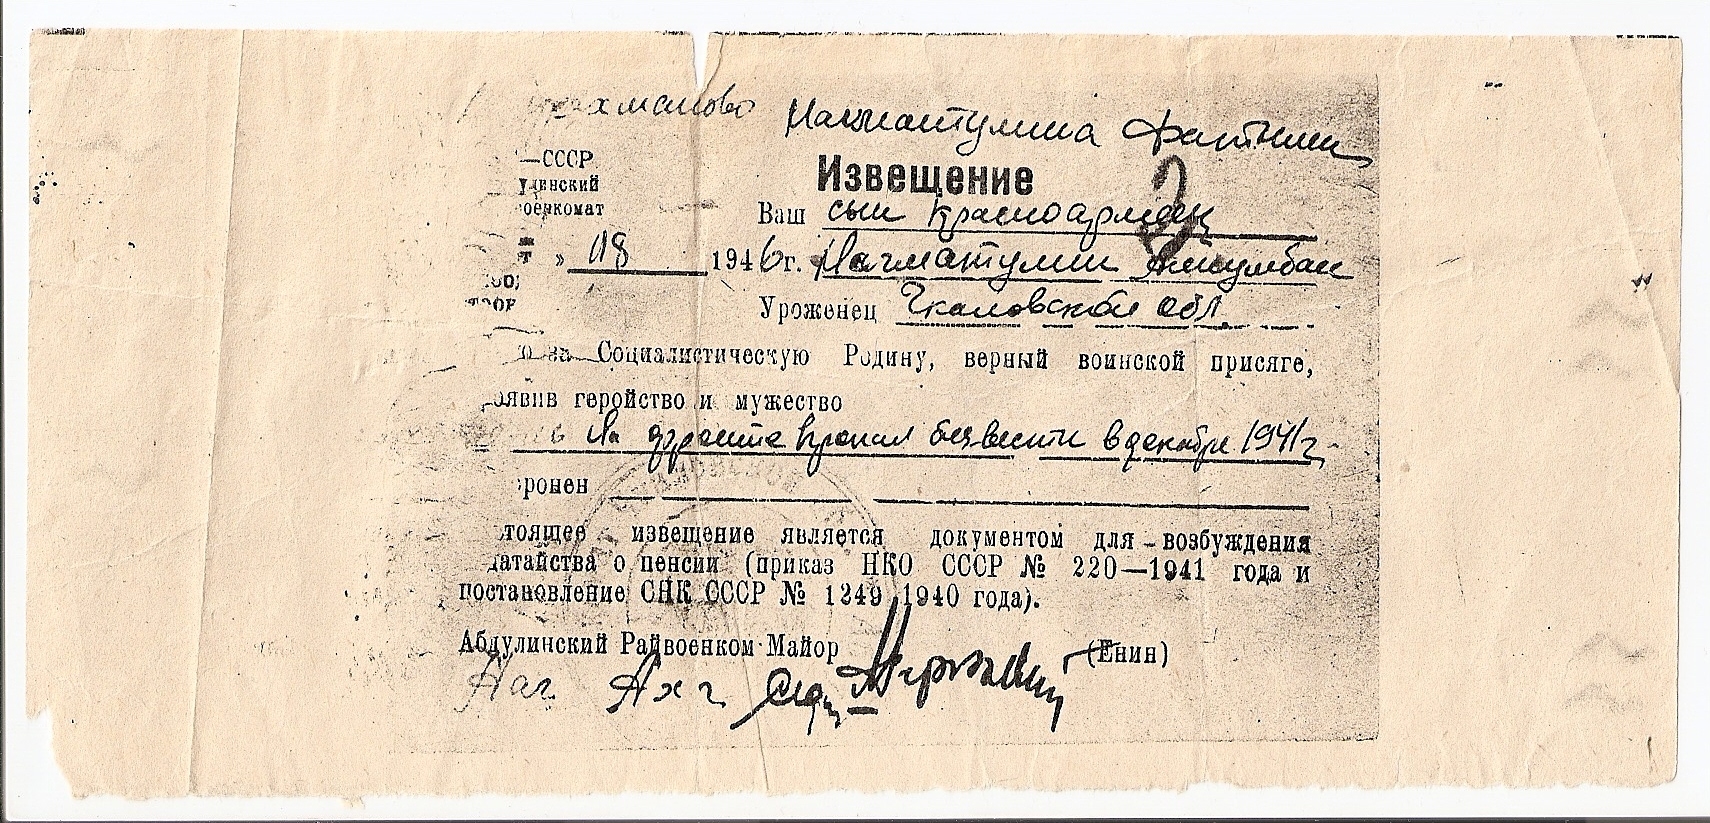 Нагматулина
Извещение
—СССР
оенкомат
Ваш сын Красноармеец
» 08 1946 г. Нагматулин
Уроженец Чкаловской обл.
за Социалистическую Родину, верный воинской присяге,
оявив геройство и мужество
На фронте пропал без вести в декабре 1941 г.
ронен
тоящее извещение является документом для возбуждения
датайства о пенсии (приказ НКО СССР № 220—1941 года и
постановление СНК СССР № 1249 1940 года).
Абдулинский Райвоенком Майор (Енин)
Нач